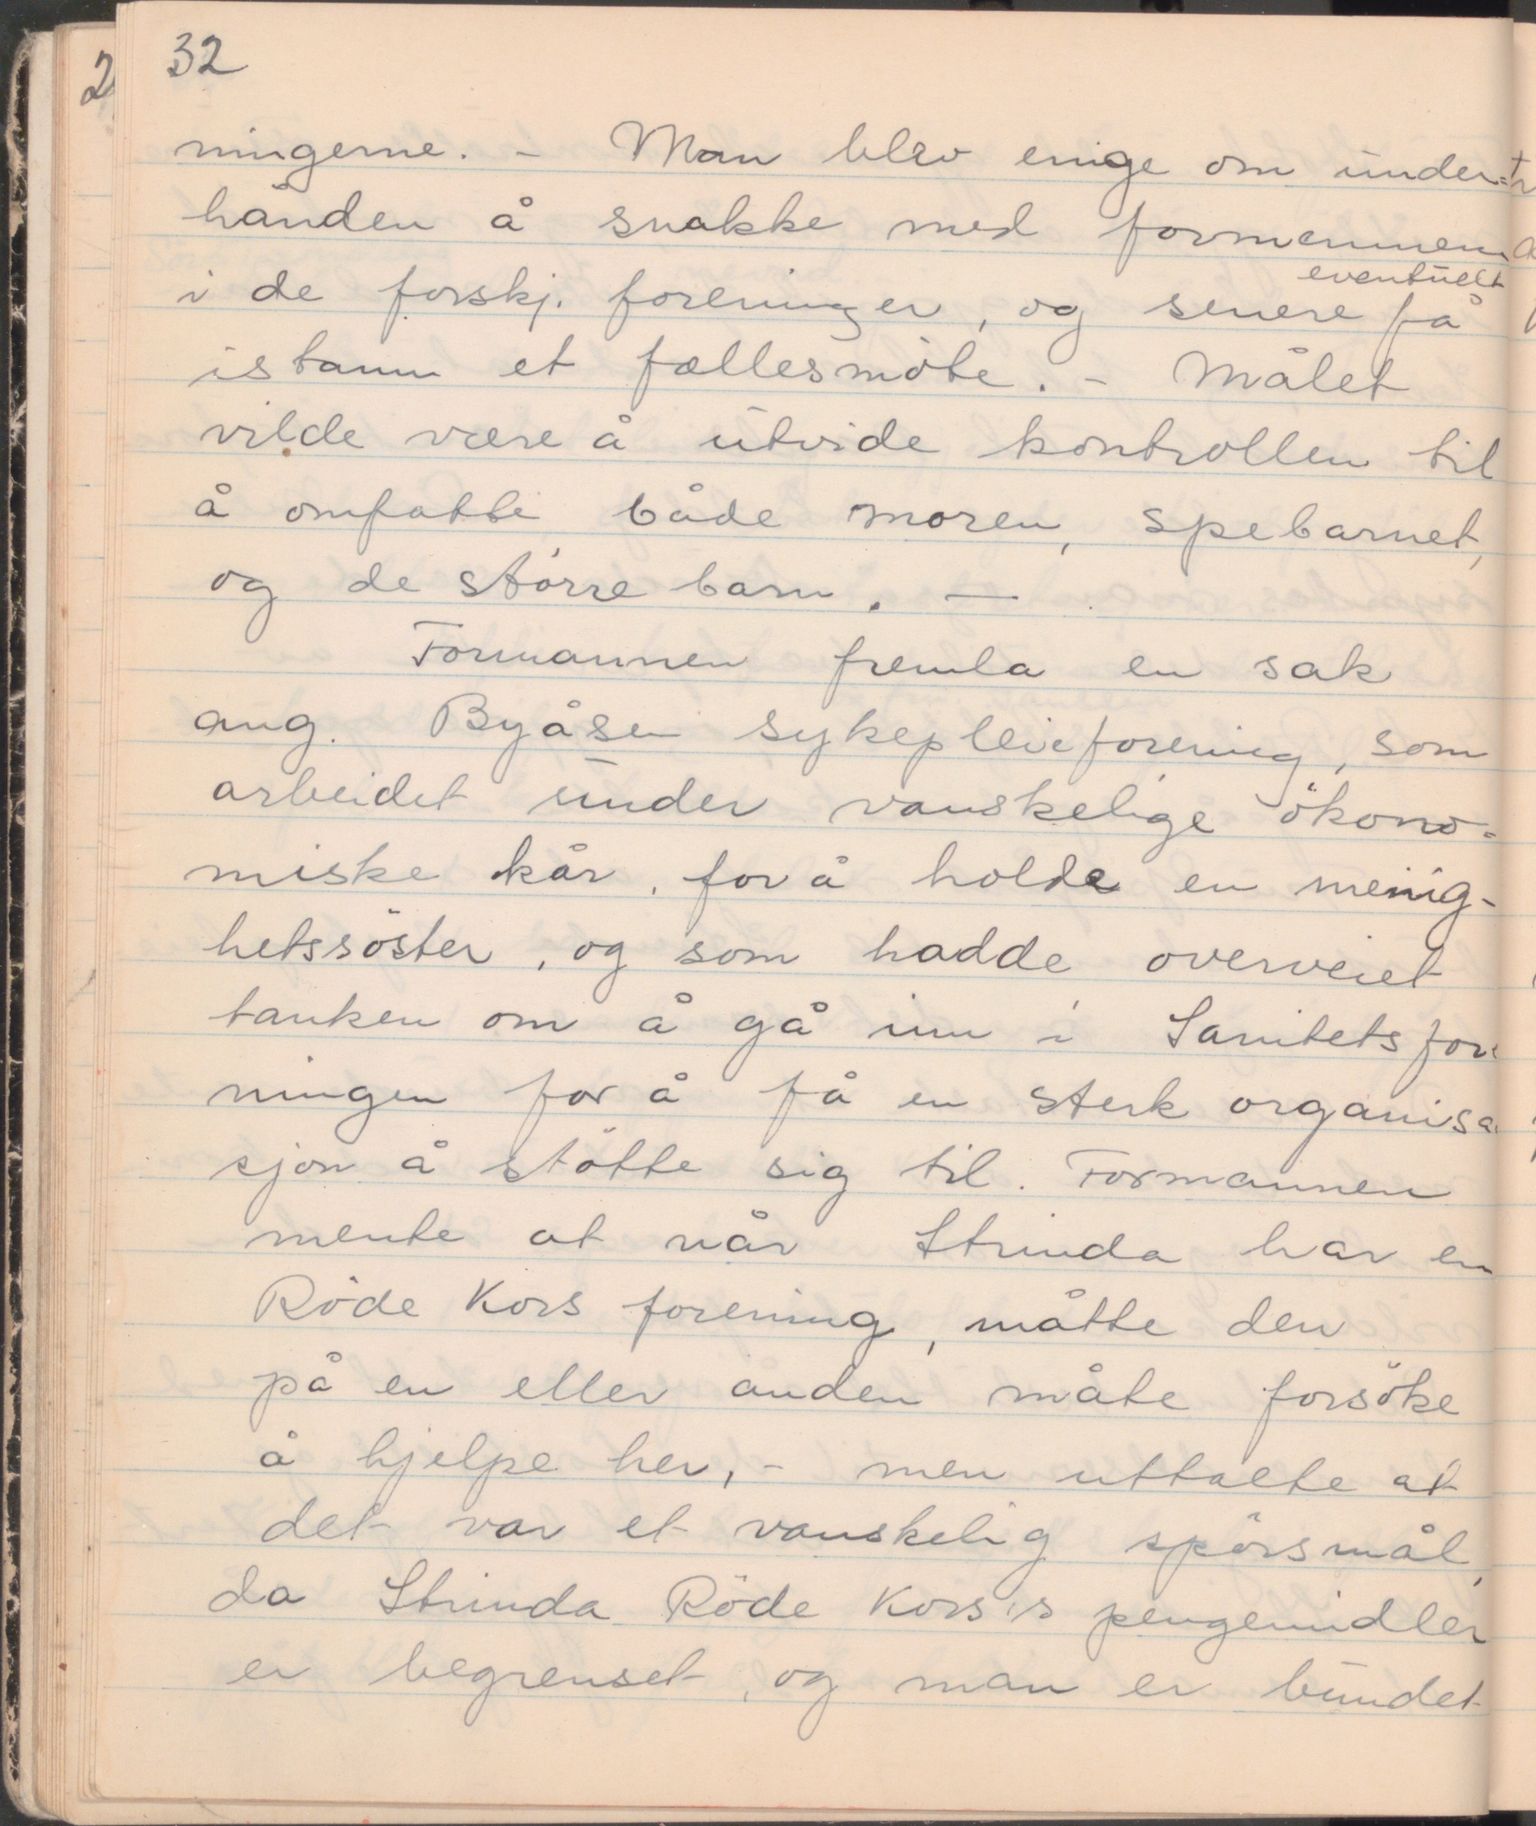 32
ningerne. - Man blev enige om under=
hånden å snakke med formennene
i de forskj. foreninger, og senere eventuelt få
istann et fællesmöte. - Målet
vilde være å utvide kontrollen til
å omfatte både moren, spebarnet,
og de större barn. -
Formannen fremla en sak
ang. Byåsen sykepleieforening, som
arbeidet under vanskelige ökono=
miske kår, for å holde en menig-
hetssöster, og som hadde overveiet
tanken om å gå inn i Sanitetsfore
ningen for å få en sterk organisa
sjon å stötte sig til. Formannen
mente at når Strinda har en
Röde Kors forening, måtte den
på en eller anden måte forsöke
å hjelpe her, - men uttalte at
det var et vanskelig spörsmål,
da Strinda Röde Kors's pengemidler
er begrenset, og man er bundet